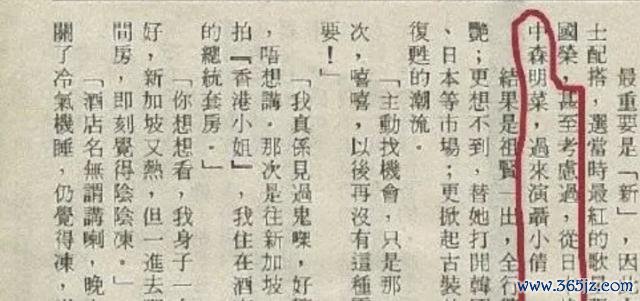 最重要是「新」，因
士配搭，選當時最紅的歌
國榮，甚至考慮過，從日
中森明菜，過來演聶小倩
結果是祖賢一出，全行
艷；更想不到，替她打開韓
、日本等市場；更掀起古裝
復甦的潮流。
「主動找機會，只是那
次，嘻嘻，以後再沒有這種
要！」
「我真係見過鬼㗎，好
，唔想講。那次是往新加坡
拍『香港小姐』，我住在酒
的總統套房。」
「你想想看，我身子一
好，新加坡又熱，但一進去
間房，即刻覺得陰陰凍。」
「酒店名無謂講喇，晚
關了冷氣機睡，仍覺得凍，
www.365jz.com